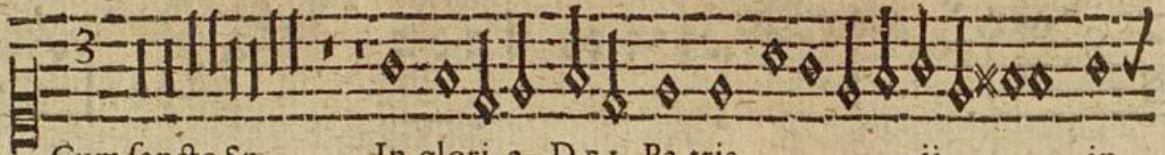 3
Cum ſancto Sp In glori a D E I Pa tris ij in